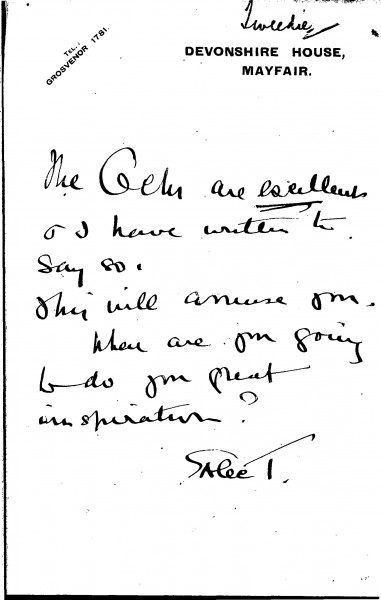 Tweedie
TEL.:
GROSVENOR 1781.
DEVONSHIRE HOUSE,
MAYFAIR.
The are excellent
& I have written to
say so.
This will amuse you.
When are you going
to do your great
inspiration?
T.